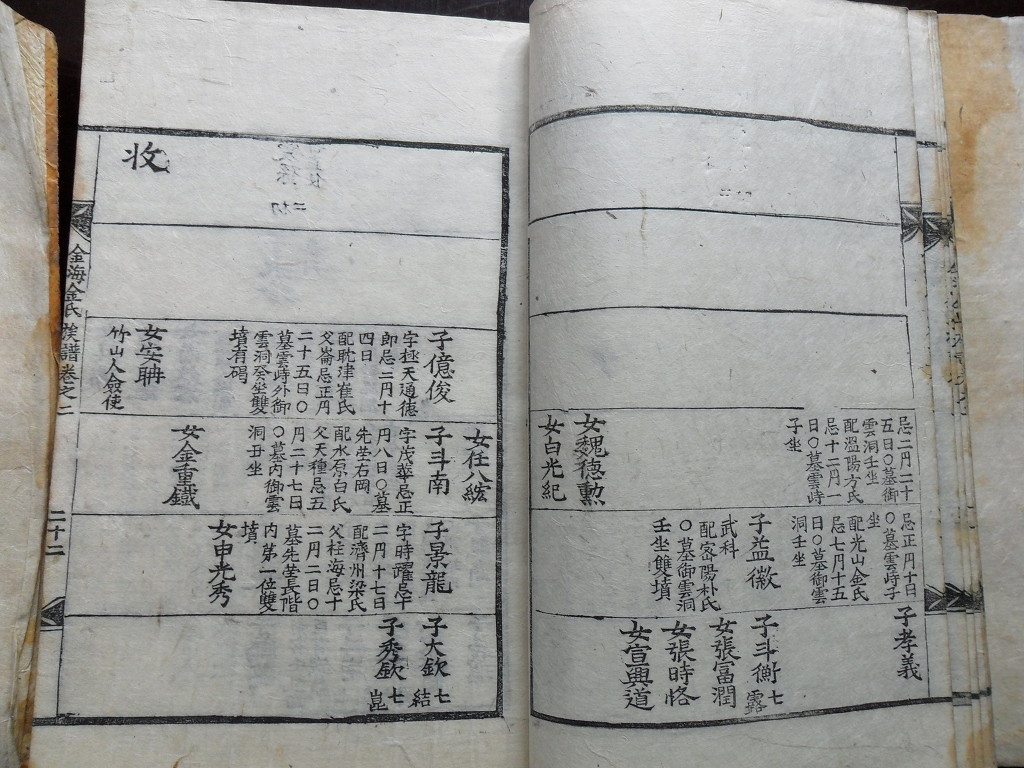 忌二月二十
五日〇墓御
雲洞壬坐
配溫陽方氏
忌十二月一
日〇墓雲峙
子坐
女魏德勲
女白光紀
忌正月十日
〇墓雲峙子
坐
配光山金氏
忌七月十五
日〇墓御雲
洞壬坐
子益徽
武科
配密陽朴氏
〇墓御雲洞
壬坐雙墳
子孝義
子斗衡 七露
女張富潤
女張時恪
女宣興道
收
子億俊
字極天通德
郞忌二月十
四日
配耽津崔氏
父崙忌正月
二十五日〇
墓雲峙外御
雲洞癸坐雙
墳有碣
女安聃
竹山人僉使
女任八紘
子斗南
字茂華忌正
月八日〇墓
先塋右岡
配水原白氏
父天種忌五
月二十七日
〇墓內御雲
洞丑坐
女金重鐵
子景龍
字時躍忌十
二月十七日
配濟州梁氏
父柱海忌十
二月二日〇
墓先塋長階
內第一位雙
墳
女申光秀
子大欽 七結
子秀欽 七崑
金海金氏族譜卷之二
二十二